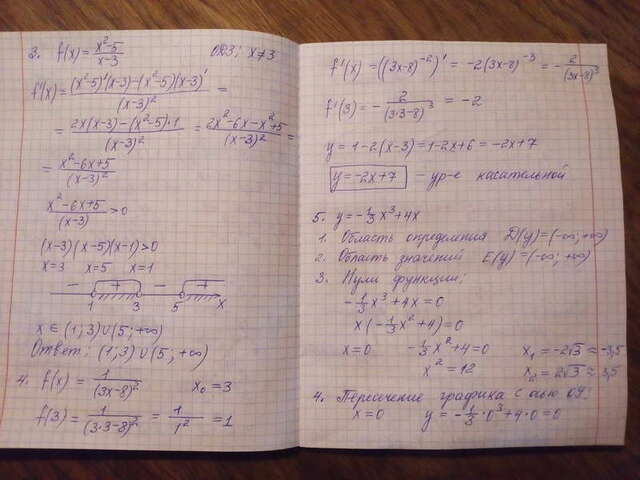 3. f(x) = \frac{x²-5}{x-3}     ОДЗ: x≠3
f'(x) = \frac{(x²-5)'(x-3)-(x²-5)(x-3)'}{(x-3)²} =
= \frac{2x(x-3)-(x²-5)·1}{(x-3)²} = \frac{2x²-6x-x²+5}{(x-3)²} =
= \frac{x²-6x+5}{(x-3)²}
\frac{x²-6x+5}{(x-3)} > 0
(x-3)(x-5)(x-1)>0
x=3   x=5   x=1
− + − +
1 3 5 x
x ∈ (1;3)∪(5;+∞)
Ответ: (1;3)∪(5;+∞)
4. f(x) = \frac{1}{(3x-8)²}     x₀=3
f(3) = \frac{1}{(3·3-8)²} = \frac{1}{1²} = 1
f'(x) = ((3x-8)⁻²)' = -2(3x-8)⁻³ = -\frac{2}{(3x-8)³}
f'(3) = -\frac{2}{(3·3-8)³} = -2
y = 1-2(x-3)=1-2x+6 = -2x+7
y=-2x+7 – ур-е касательной
5. y=-\frac{1}{3}x³+4x
1. Область определения D(y)=(-∞;+∞)
2. Область значений E(y)=(-∞;+∞)
3. Нули функции:
-\frac{1}{3}x³+4x=0
x(-\frac{1}{3}x²+4)=0
x=0   -\frac{1}{3}x²+4=0   x₁=-2√3≈-3,5
x²=12   x₂=2√3≈3,5
4. Пересечение графика с осью OY:
x=0   y=-\frac{1}{3}·0³+4·0=0